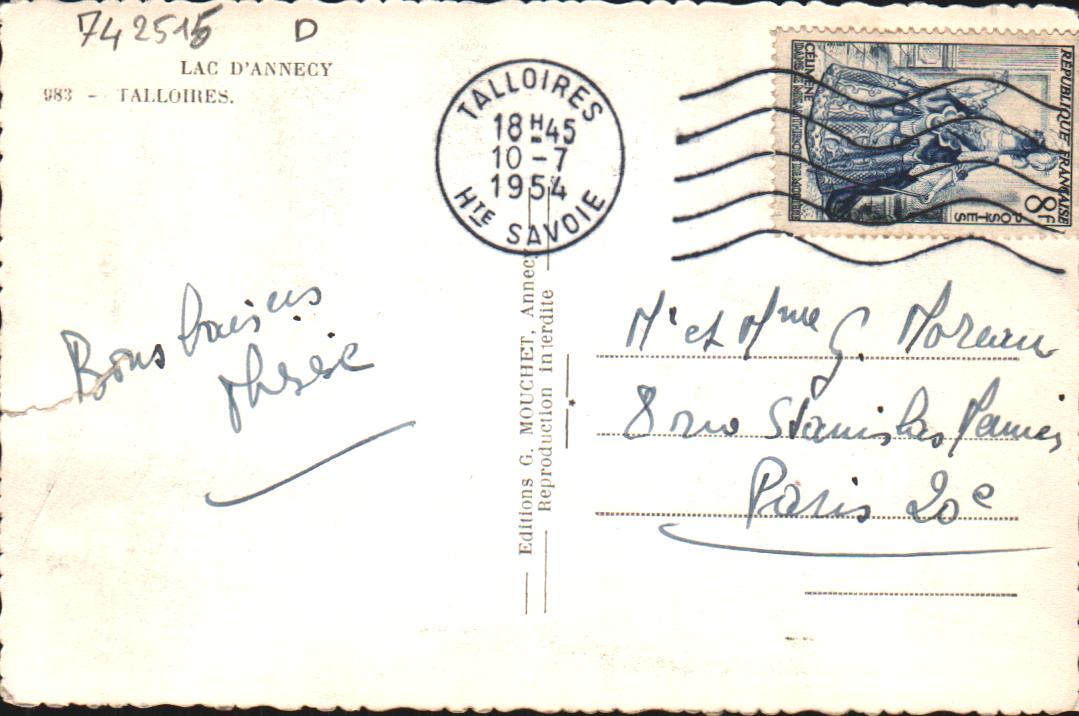 742515 D
LAC D'ANNECY
983 - TALLOIRES.
TALLOIRES
18H45
10-7
1954
HTE SAVOIE
REPUBLIQUE FRANÇAISE
8F
POSTES
CÉLIMÈNE
Bons baisers
Editions G. MOUCHET, Annecy
Reproduction interdite
Mr et Mme G. Moreau
8 rue Stanislas
Paris 20e